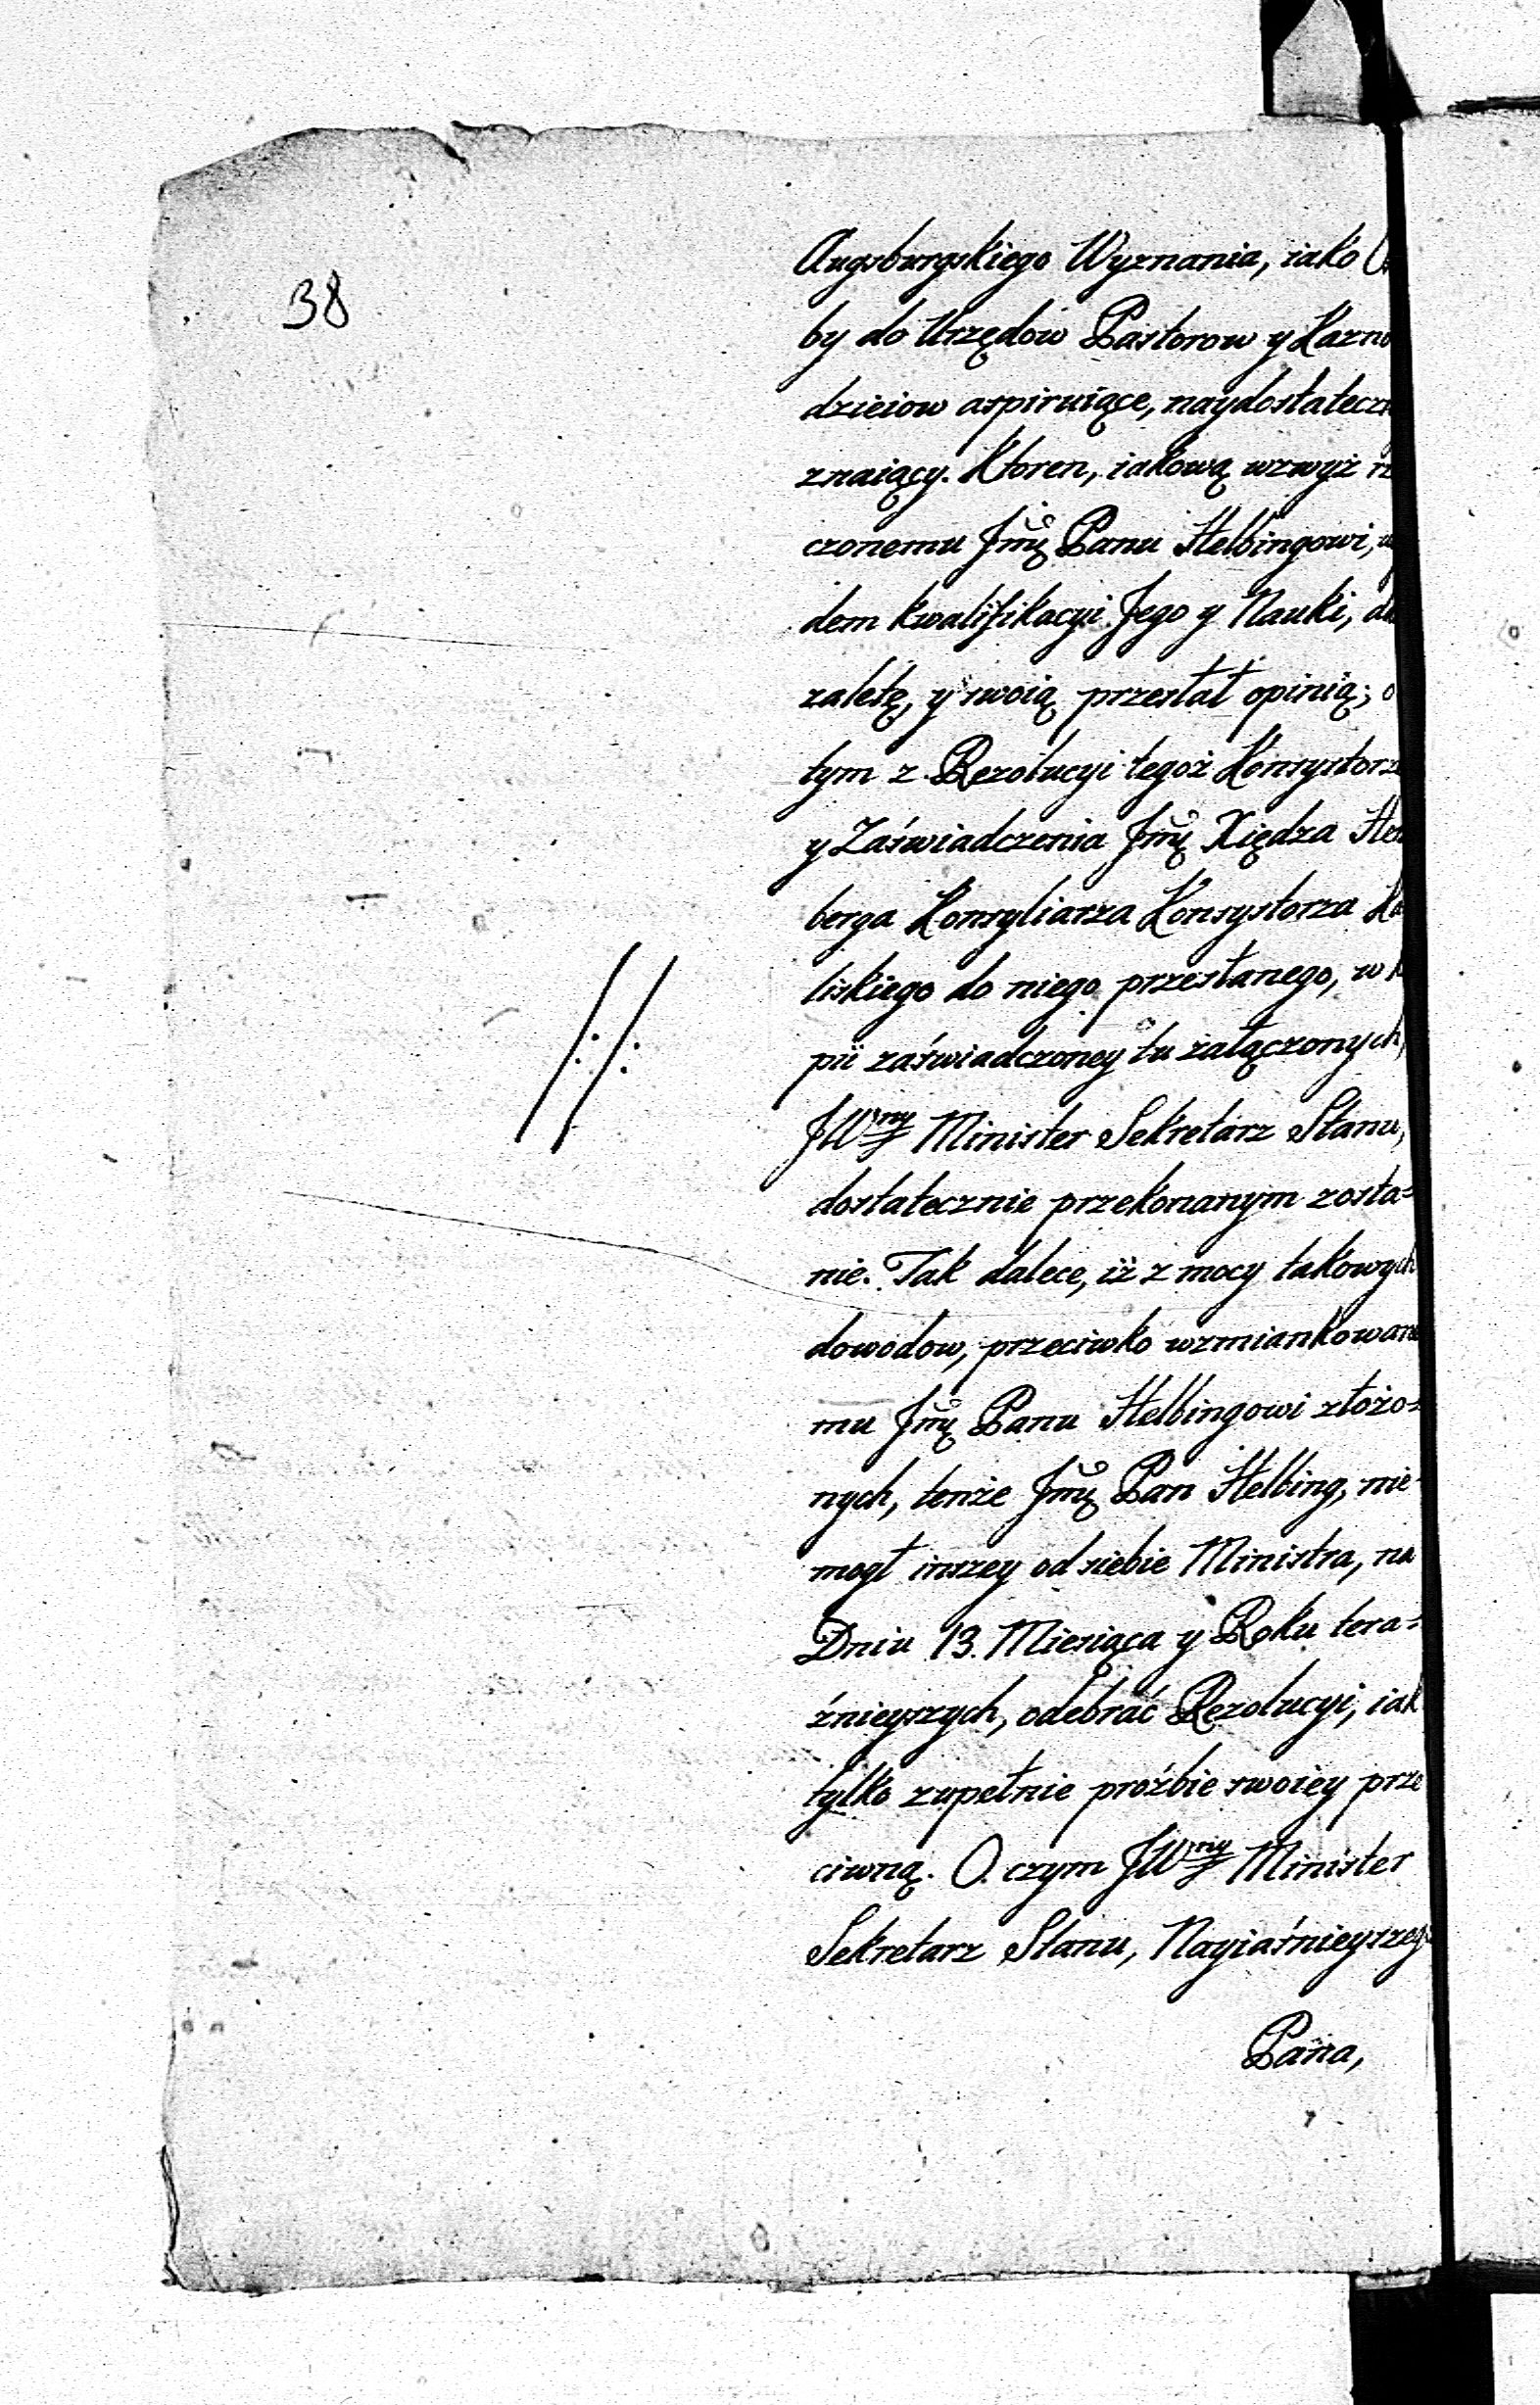 38
Augsburgskiego Wyznania, iako
by do Urzędow Pastorow y Kazno
dzieiow aspiruiące, naydostateczn
znaiący. Ktoren, iakową wzwyż rz
czonemu Jmę Panu Helbingowi,
dem kwalifikacyi Jego y Nauki, da
zaletę, y swoią przesłał opinią;
tym z Rezolucyi tegoż Konsystorz
y Zaświadczenia Jmę Xiędza
berga Konsyliarza Konsystorza Ka
liskiego do niego przesłanego, w k
pii zaświadczoney tu załączonych,
JWny Minister Sekretarz Stanu,
dostatecznie przekonanym zosta=
nie. Tak dalece, iż z mocy takowych
dowodow, przeciwko wzmiankowane
mu Jmę Panu Helbingowi złożo=
nych, tenże Jmę Pan Helbing, nie-
mogł inszey od siebie Ministra, na
Dniu 13. Miesiąca y Roku tera=
źnieyszych, odebrać Rezolucyi, iak
tylko zupełnie proźbie swoiey prze
ciwną. O czym JWny Minister
Sekretarz Stanu, Nayiaśnieyszego
Pana,